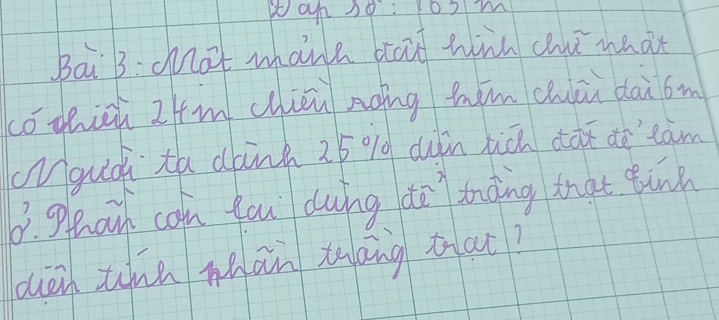 Đáp số: 165 m
Bài 3: Một mảnh đất hình chữ nhật
có chiều 24m chiều rộng kém chiều dài 6m
Người ta dành 25% diện tích đất để làm
ở. Phần còn lại dùng để trồng trọt tính
diện tính phần trồng trọt?